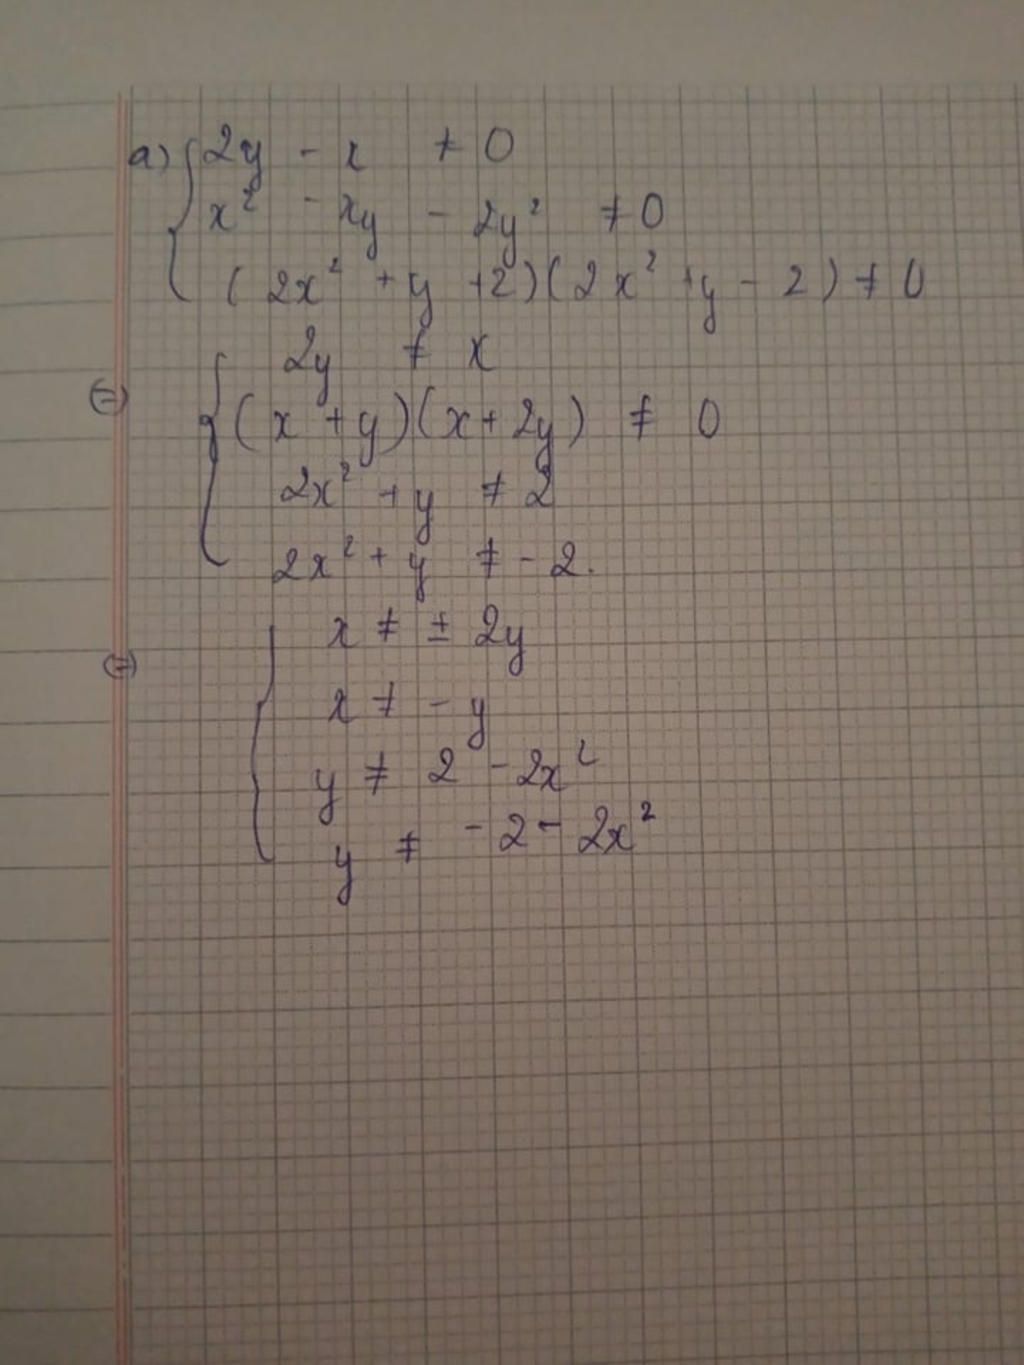 a) { 2y - x ≠ 0
x² - xy - 2y² ≠ 0
(2x² + y + 2)(2x² + y - 2) ≠ 0
(=) { 2y ≠ x
(x + y)(x + 2y) ≠ 0
2x² + y ≠ 2
2x² + y ≠ -2.
(=) { x ≠ ± 2y
x ≠ - y
y ≠ 2 - 2x²
y ≠ -2 - 2x²